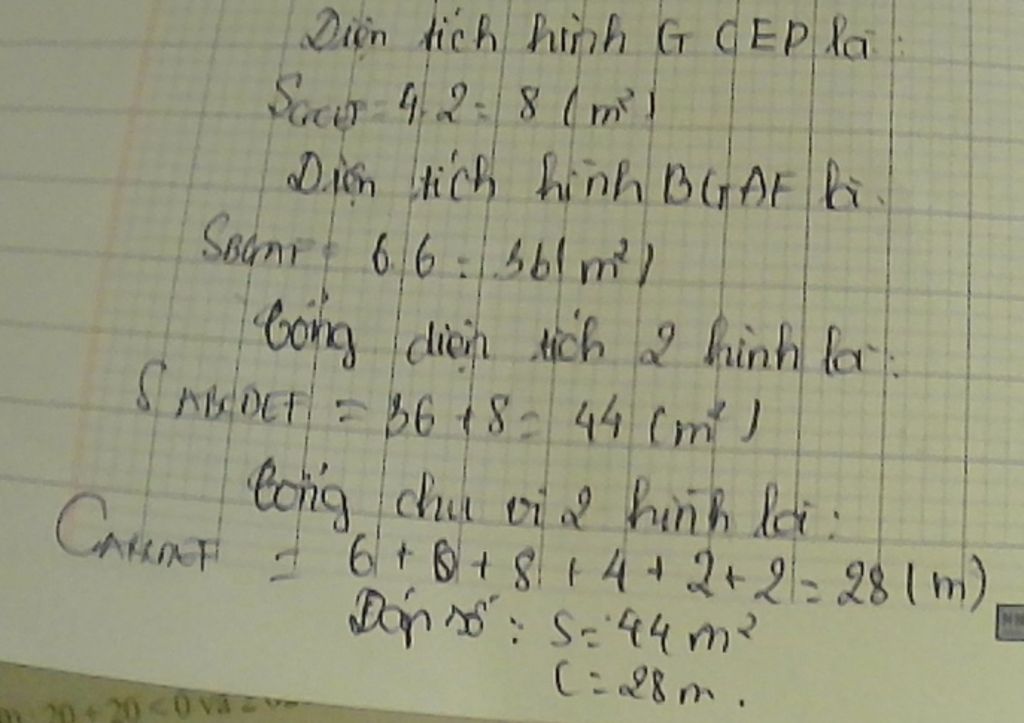 Diện tích hình GCED là:
= 4.2 = 8 (m²)
Diện tích hình BGAF là.
= 6.6 = 36 (m²)
Tổng diện tích 2 hình là:
S ABCDEF = 36 + 8 = 44 (m²)
Tổng chu vi 2 hình là:
= 6 + 6 + 8 + 4 + 2 + 2 = 28 (m)
Đáp số: S = 44 m²
C = 28 m.
20 + 20 < 0 và